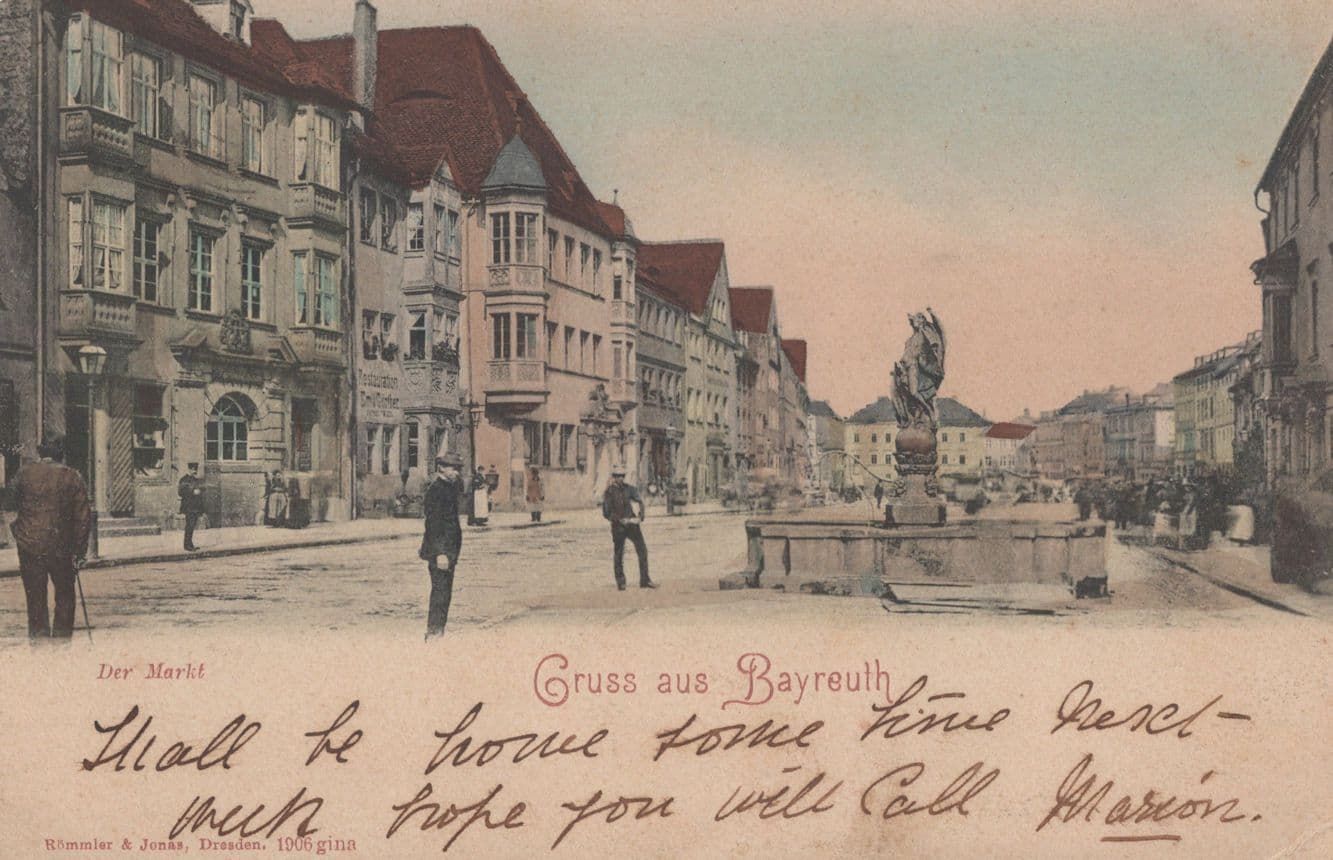 Restauration
Der Markt
Gruss aus Bayreuth
Shall be home some time next
week hope you will Call Marion.
Römmler & Jonas, Dresden. 1906 gina